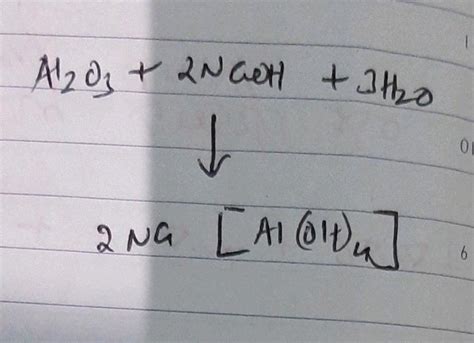 Al₂O₃ + 2NaOH + 3H₂O
↓
2Na [Al(OH)₄]